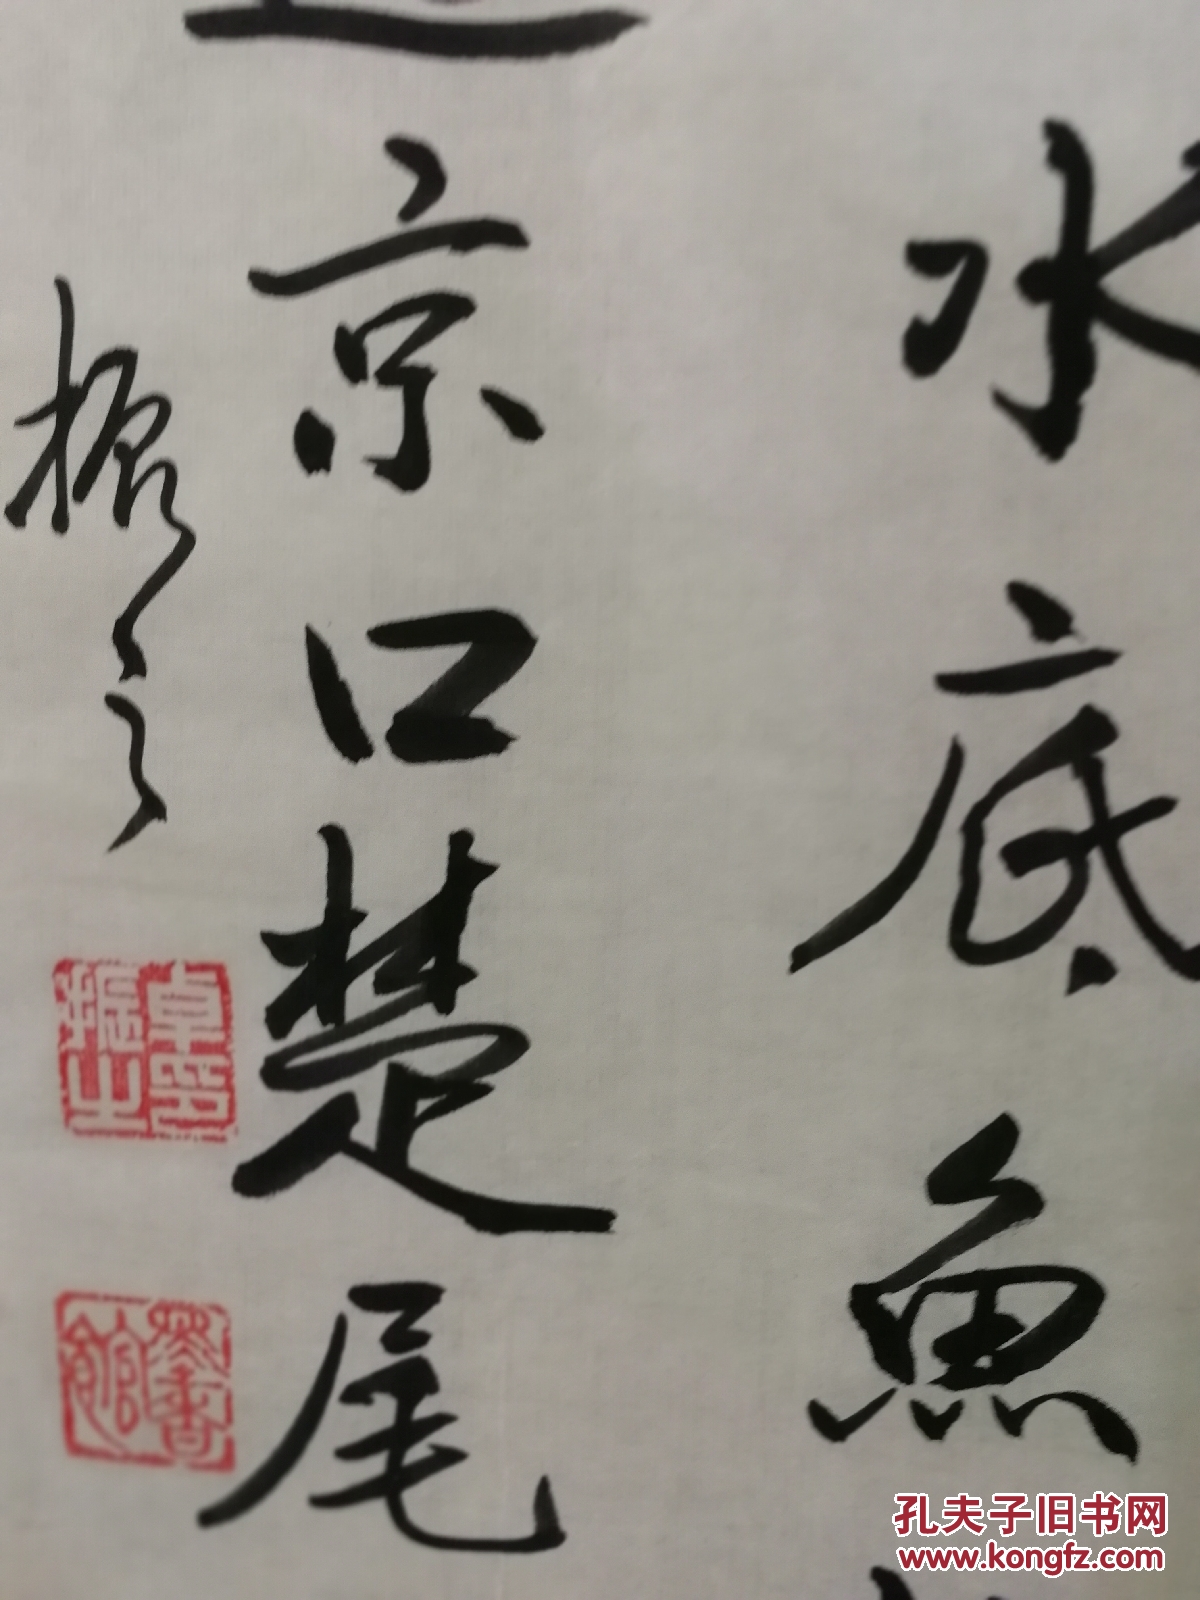 水底魚
京口楚尾
振之
卓印振之
孔夫子旧书网
www.kongfz.com